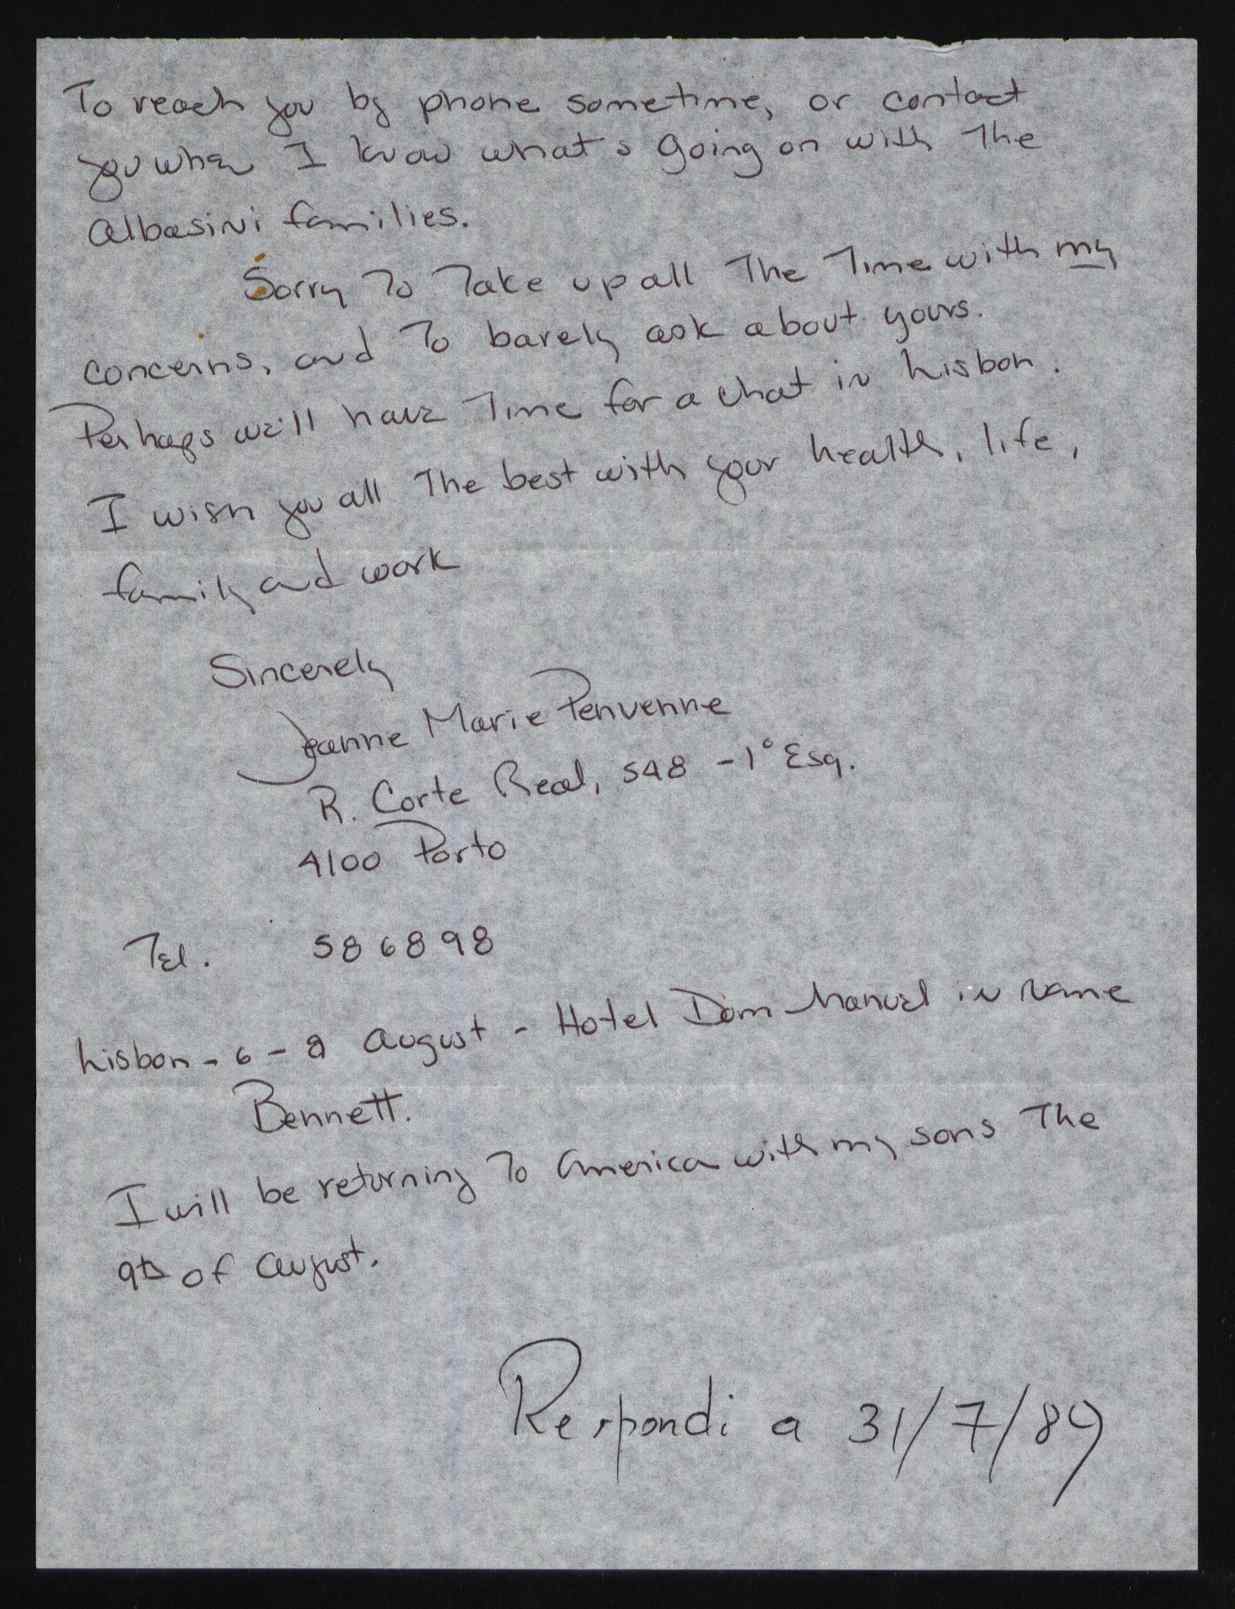 To reach you by phone sometime, or contact
you when I know what's going on with the
Albasini families.
Sorry To Take up all The Time with my
concerns, and To barely ask about yours.
Perhaps we'll have Time for a chat in Lisbon.
I wish you all The best with your health, life,
family and work
Sincerely
Jeanne Marie Penvenne
R. Corte Real, 548 - 1° Esq.
4100 Porto
Tel. 586898
Lisbon - 6 - 8 August - Hotel Dom Manuel in name
Bennett.
I will be returning To America with my sons The
9th of August.
Respondi a 31/7/89